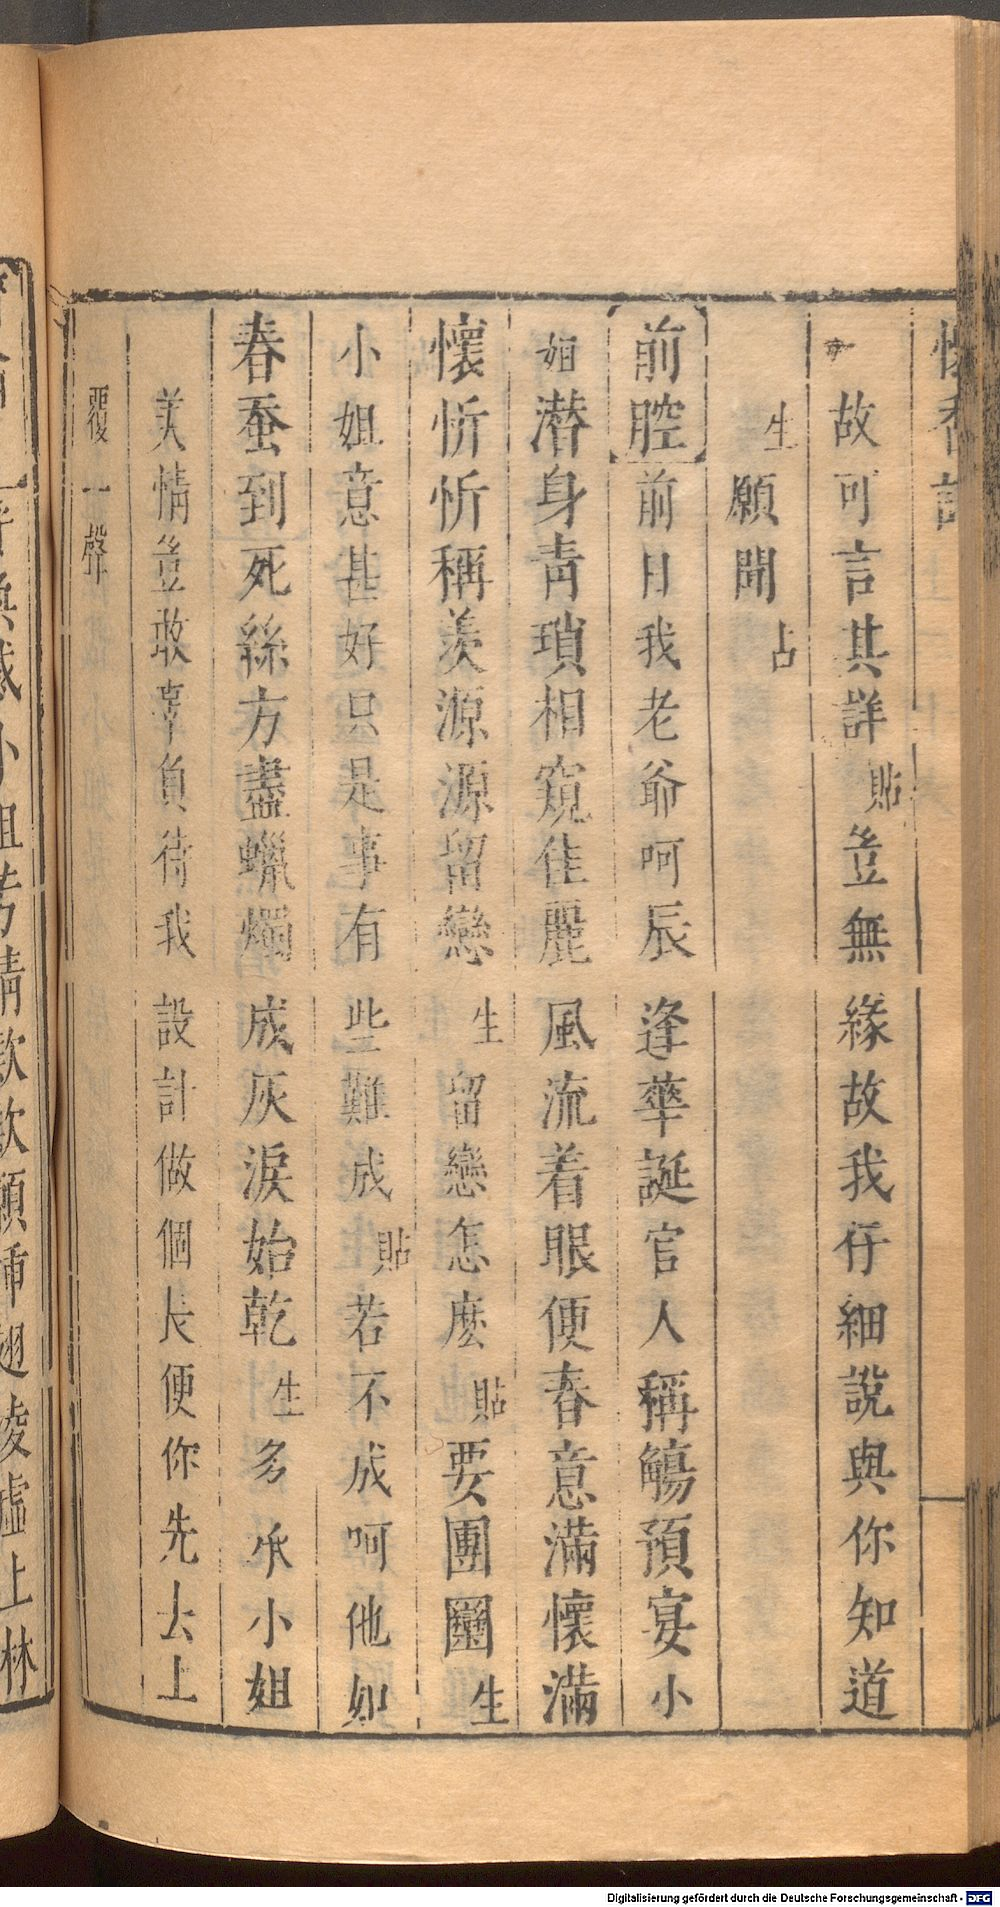 懷香記
故可言其詳貼豈無緣故我仔細說與你知道
生願聞占
前腔前日我老爺呵辰逢華誕官人稱觴預宴小
姐潛身靑瑣相窺佳麗風流着眼便春意滿懷滿
懷忻忻稱羡源源留戀生留戀怎麽貼要團圞生
小姐意甚好只是事有些難成貼若不成呵他如
春蚕到死絲方盡蠟燭成灰淚始乾生多承小姐
美情豈敢辜負待我設計做個長便你先去上
覆一聲
小姐芳情款款願
翅凌墟上林
Digitalisierung gefördert durch die Deutsche Forschungsgemeinschaft - DFG